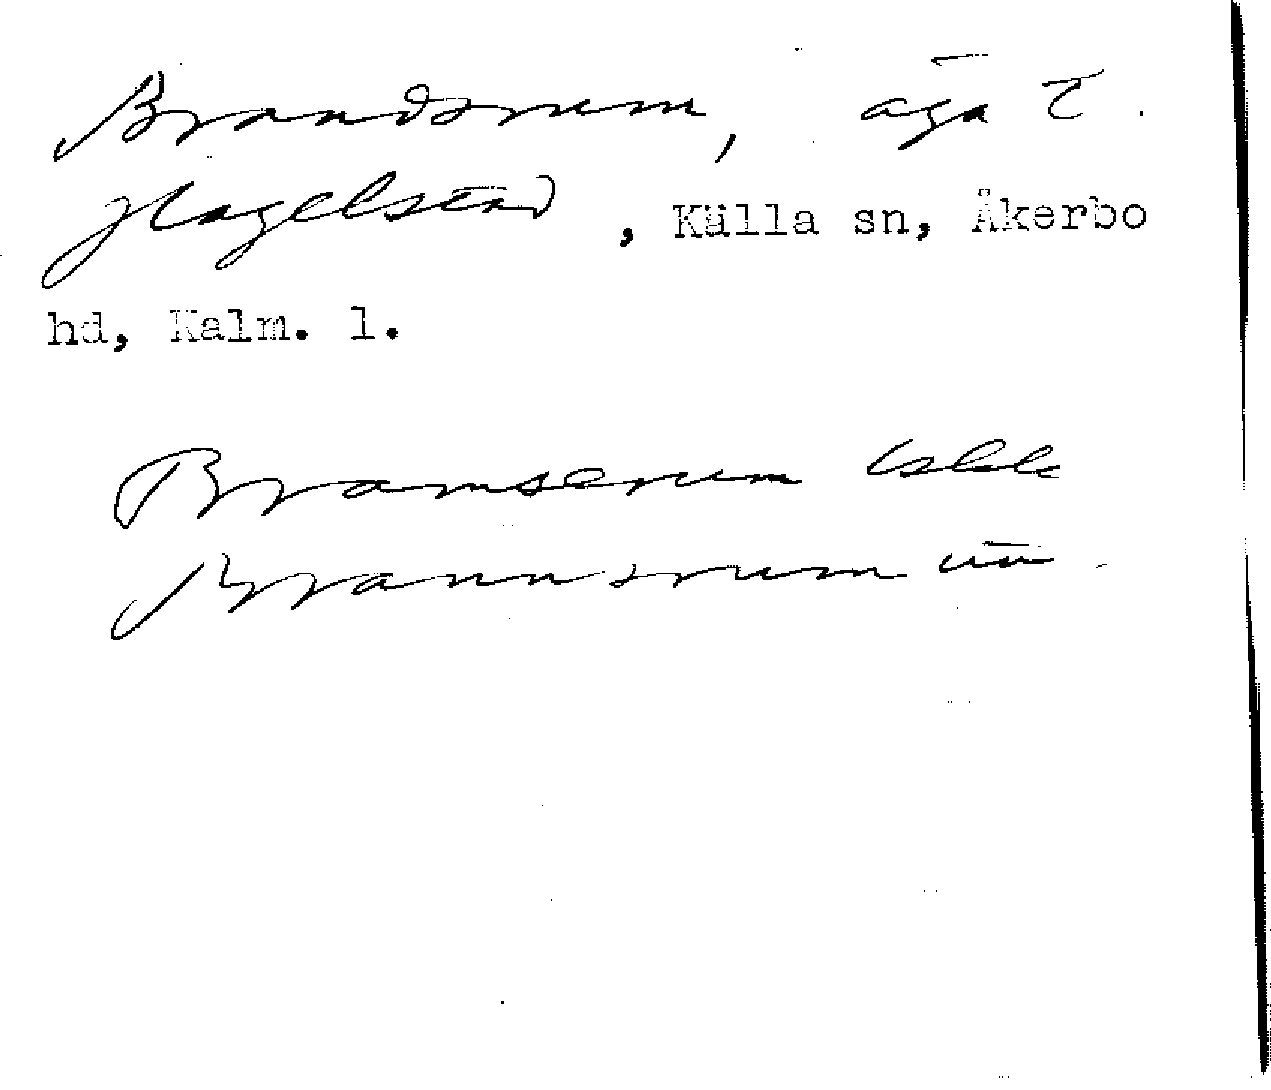 Brandsrum, äga t.
Hagelstad, Källa sn, Åkerbo
hd, Kalm. l.
Bramserum
Brannsrum